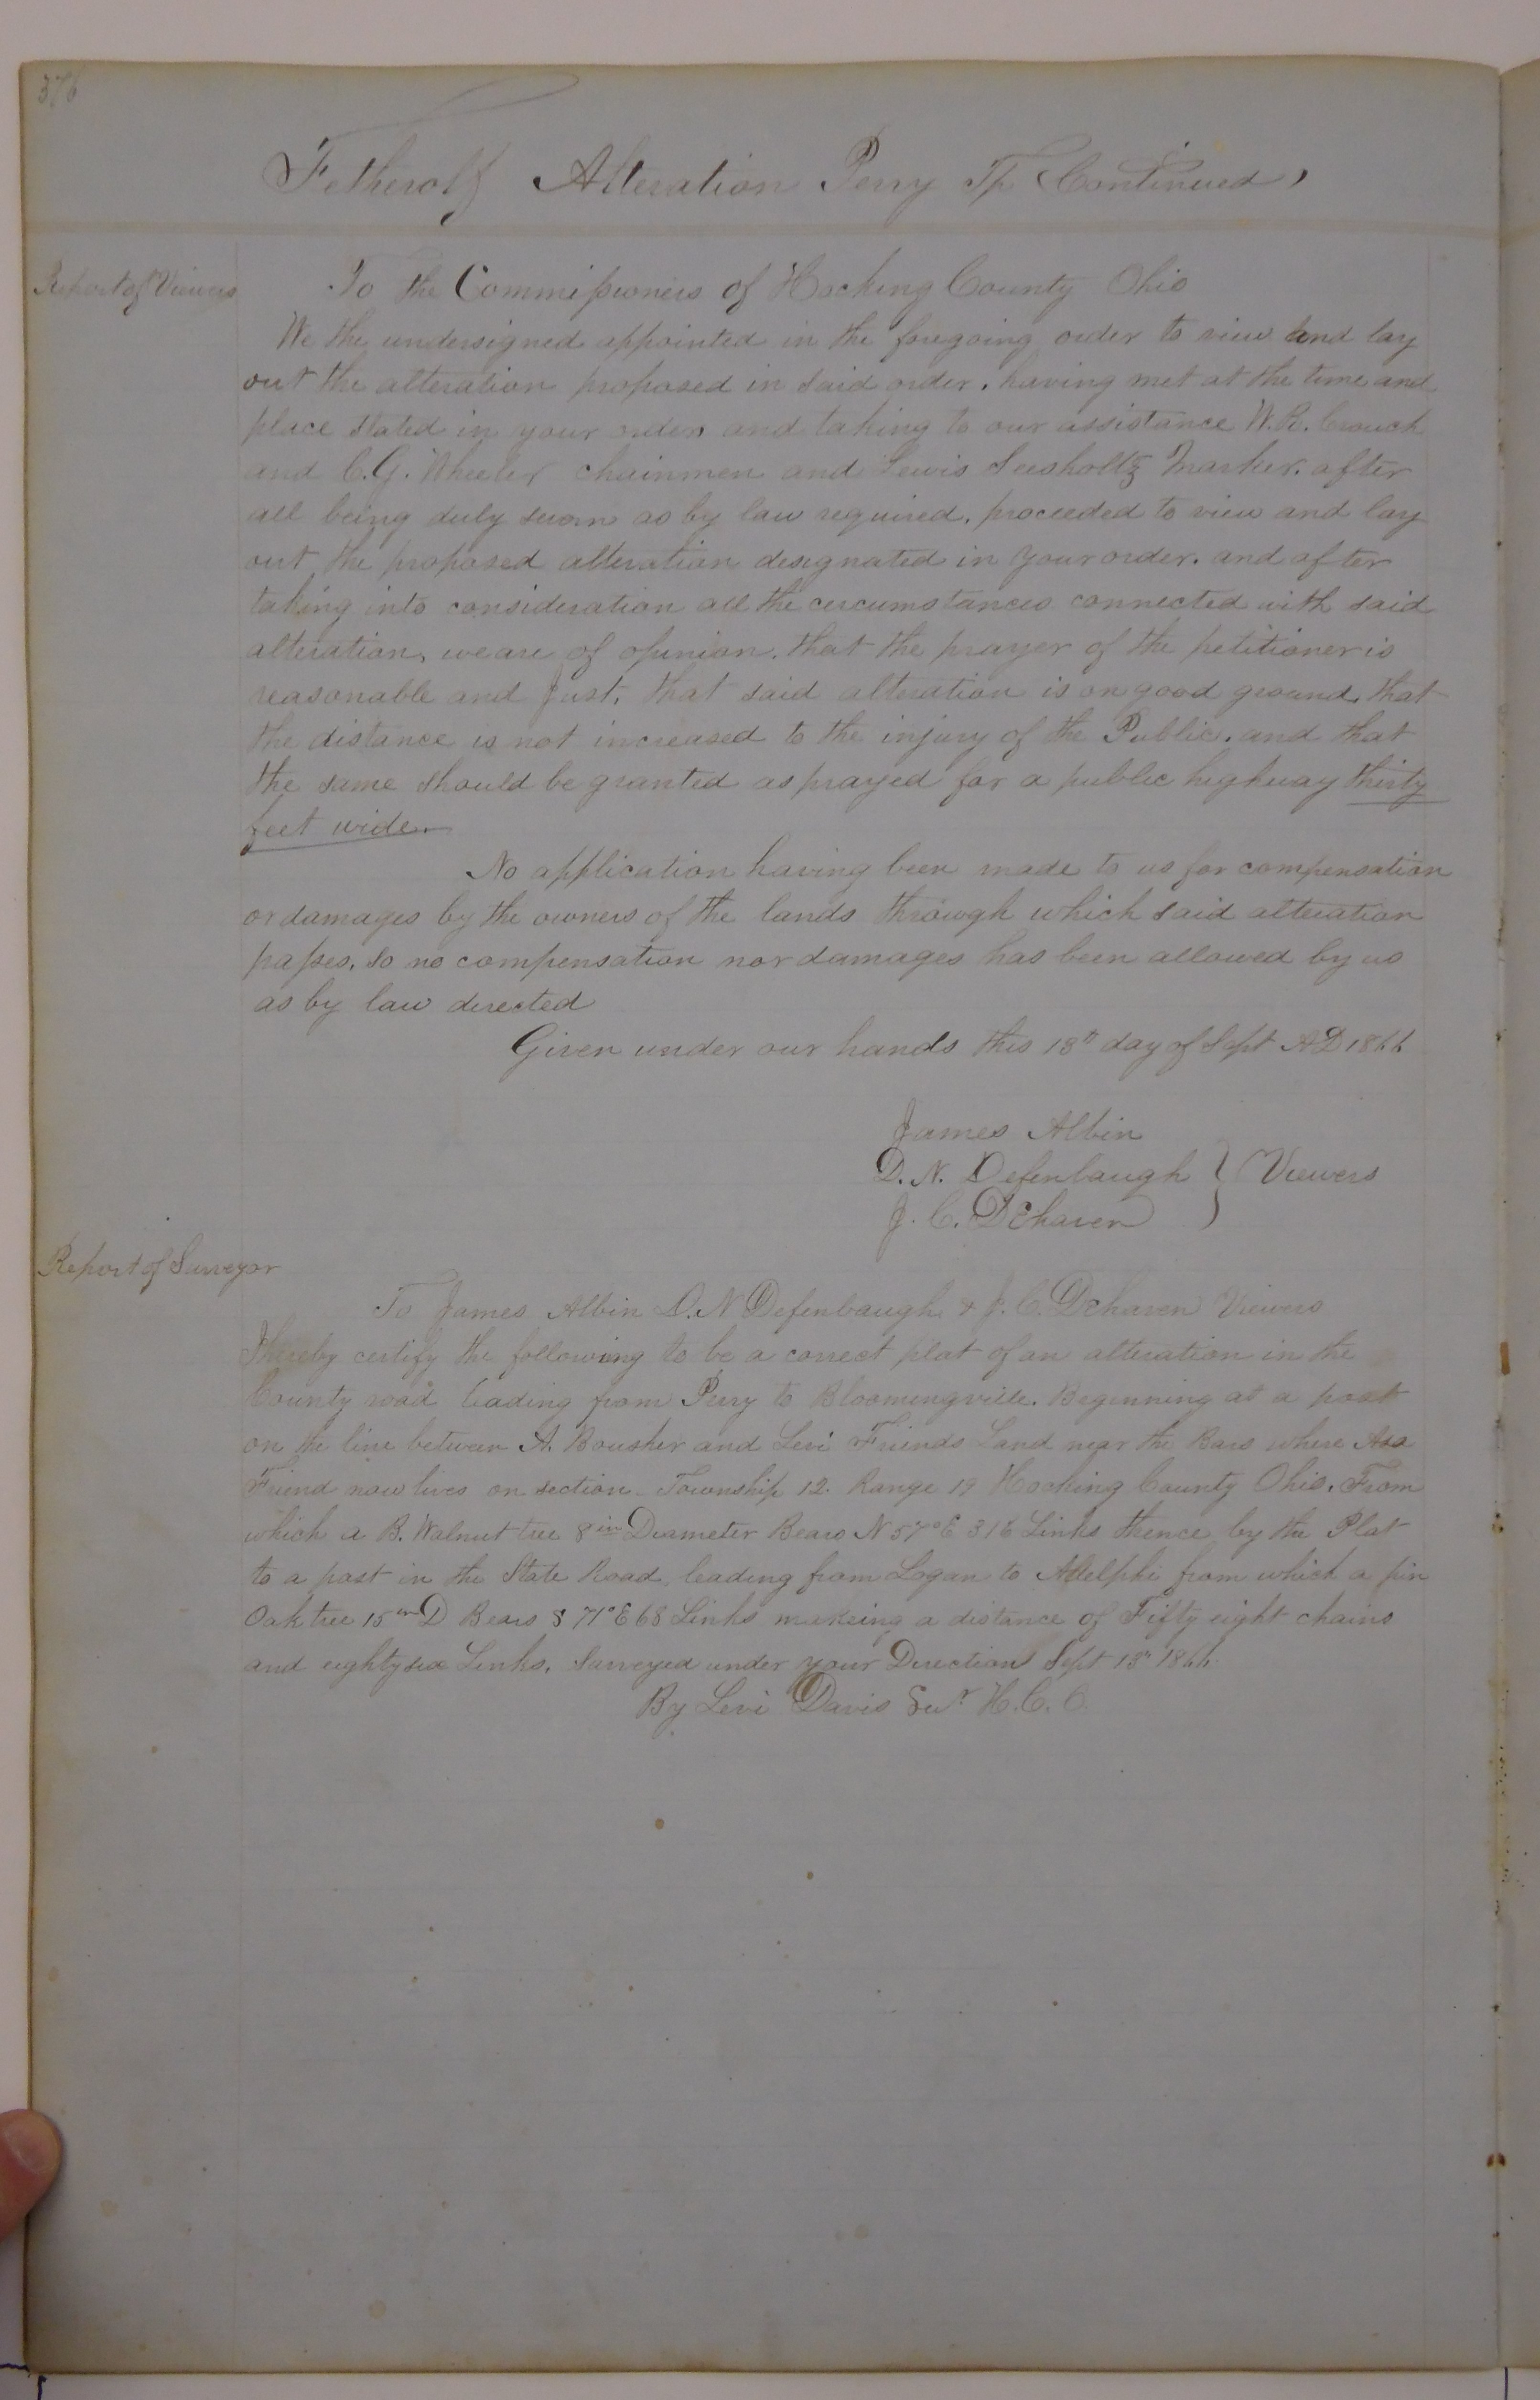 376
Fetherolf Alteration Perry Tp Continued,
Report of Viewers
To the Commissioners of Hocking County Ohio
We the undersigned appointed in the foregoing order to view and lay
out the alteration proposed in said order. having met at the time and
place stated in your order and taking to our assistance W.R. Crouch
and C.G. Wheeler chainmen and Lewis Seesholtz Marker. after
all being duly sworn as by law required. proceeded to view and lay
out the proposed alteration designated in your order. and after
taking into consideration all the cercumstances connected with said
alteration, we are of opinion. that the prayer of the petitioner is
reasonable and Just. that said alteration is on good ground, that
the distance is not increased to the injury of the Public. and that
the same should be granted as prayed for a public highway thirty
feet wide.
No application having been made to us for compensation
or damages by the owners of the lands through which said alteration
passes. so no compensation nor damages has been allowed by us
as by law derected
Given under our hands this 13th day of Sept AD 1866
James Albin
D. N. Defenbaugh } Viewers
J. C. Dehaven
Report of Surveyor
To James Albin D. N Defenbaugh & J. C. Dehaven Viewers
I hereby certify the following to be a correct plat of an alteration in the
County road leading from Perry to Bloomingville. Beginning at a post
on the line between A. Bousher and Levi Friends Land near the Bars where Asa
Friend now lives on section - Township 12. Range 19 Hocking County Ohio. From
which a B. Walnut tree 8 in Diameter Bears N 57° E 316 Links thence by the Plat
to a post in the State Road leading from Logan to Adelphi from which a pin
Oak tree 15 in D Bears S 71° E 68 Links makeing a distance of Fifty eight chains
and eighty six Links. Surveyed under your Direction Sept 13th 1866
By Levi Davis Sur H. C. O.